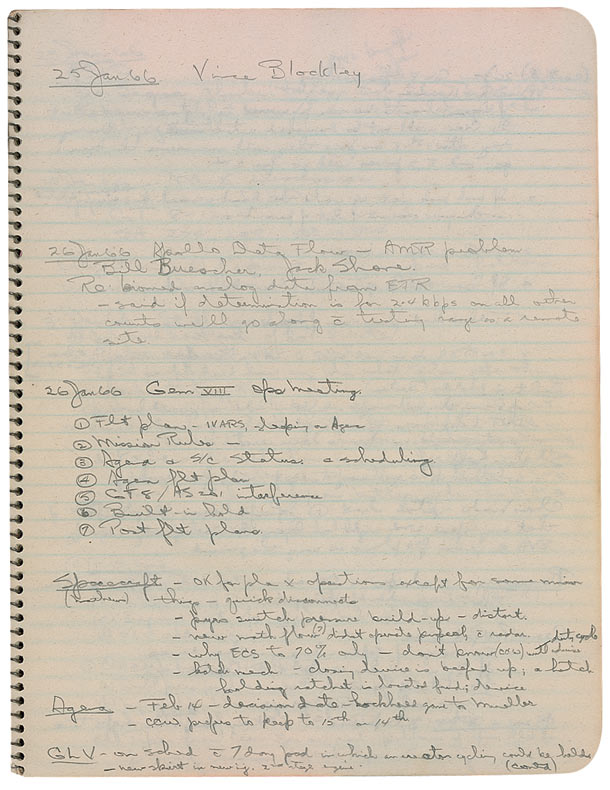 25 Jan 66 Vince Blockley
26 Jan 66 Apollo Data Flow - AMR problem
Bill Buescher, Jack Shore.
Re: biomed analog data from ETR
- said if determination is for 2.4 kbps on all other
counts we'll go along c̄ treating range as a remote
site
26 Jan 66 Gem VIII Ops Meeting.
① Flt plan - IVARS, sleeping in Agena
② Mission Rules -
③ Agena & S/C Status & scheduling
④ Agena flt plan
⑤ GT 8/AS 201 interference
⑥ Built-in hold
⑦ Post flt plans
Spacecraft - OK for pla X operations except for some minor
(Mathews) things - quick disconnects
- switch pressure build-up - distort.
- new math flow (?) didn't operate properly c̄ radar.
- why ECS to 70% only - don't know (CCW) will advise duty cycle
- hatch mech - closing device is beefed up; a hatch
holding ratchet is located ; device
Agena - Feb 14 - decision date - Lockheed gave to Mueller
- CCW prefers to keep to 15th or 14th
GLV - on sched c̄ 7 day pad in which an cycling could be held
- new skirt in 2nd stage engine. (cont'd)